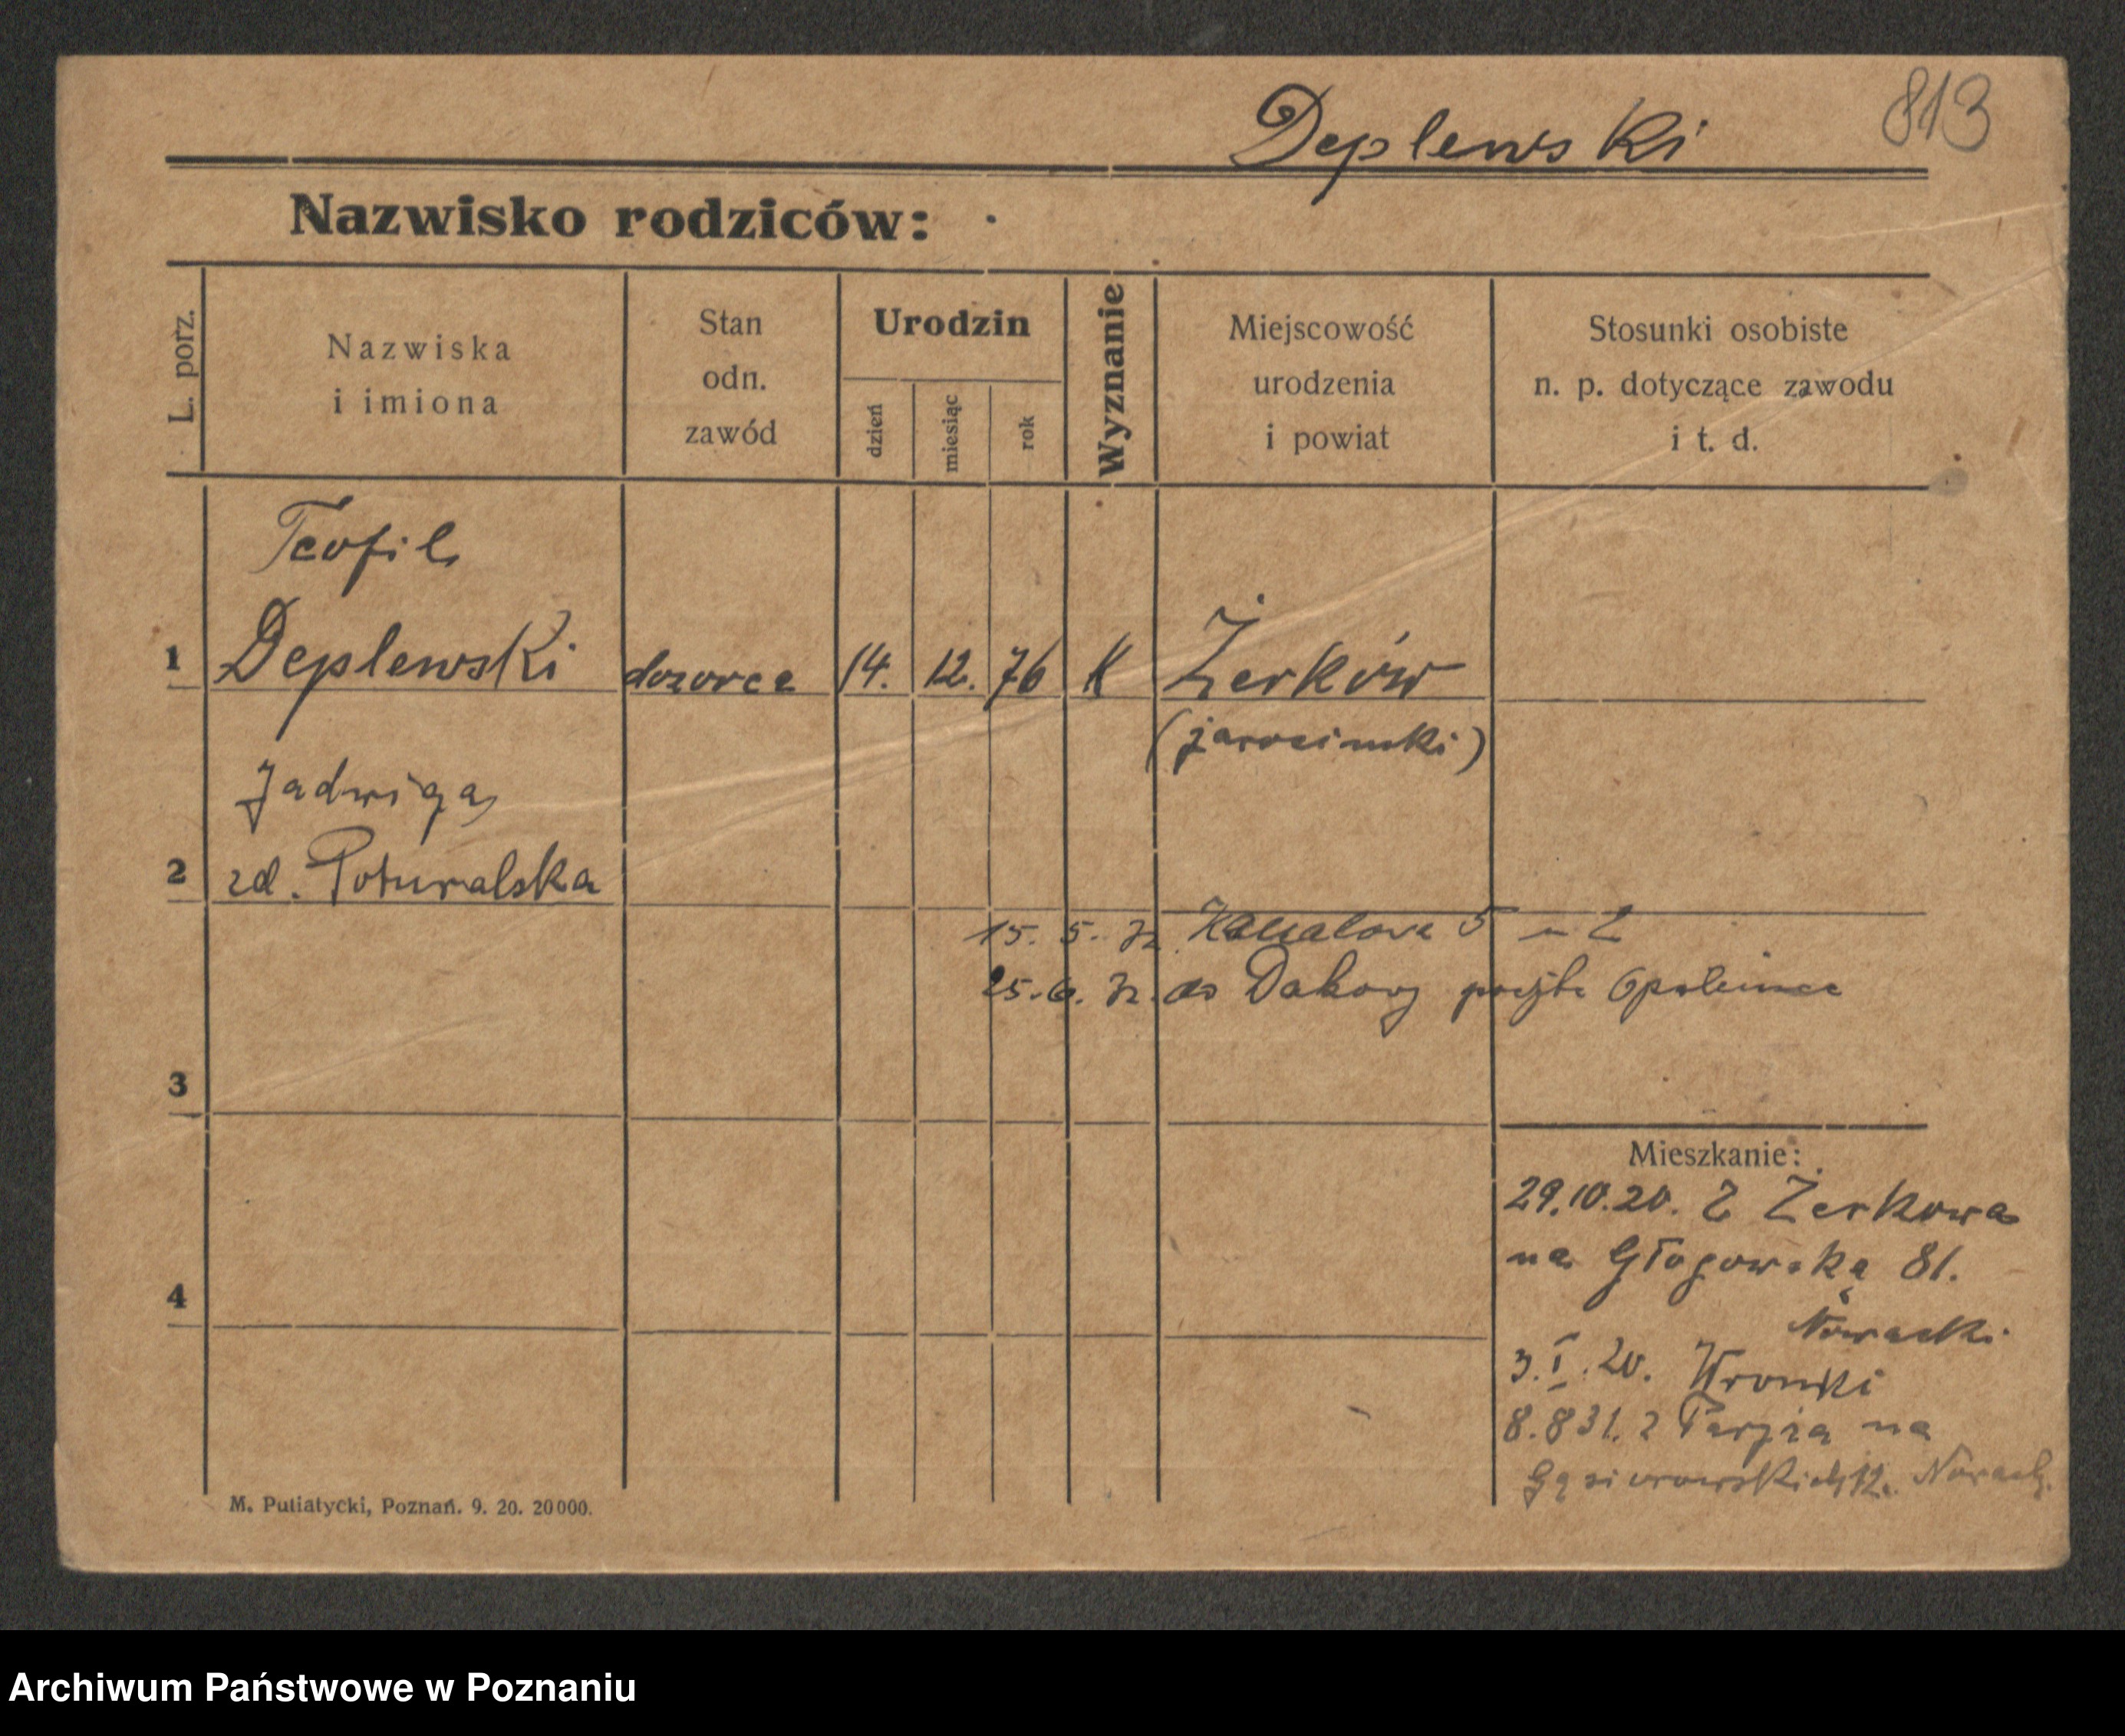 813
Deplewski
Nazwisko rodziców:
L. porz.
Nazwiska
i imiona
Stan
odn.
zawód
Urodzin
dzień
miesiąc
rok
Wyznanie
Miejscowość
urodzenia
i powiat
Stosunki osobiste
n. p. dotyczące zawodu
i t. d.
Teofil
1 Deplewski dozorca 14. 12. 76 K Żerków
(jarociński)
Jadwiga
2 zd. Poturalska
15. 5. 32 Kanałowa 5
25. 6. 32. do Dakowy poczta Opalenica
3
Mieszkanie:
29.10.20. Z Żerkowa
na Głogowską 81.
4
Nowacki
3.I.20. Wronki
8.8 31. z Paryża na
Gąsiorowskich 12. Nowack.
M. Putiatycki, Poznań. 9. 20. 20000.
Archiwum Państwowe w Poznaniu